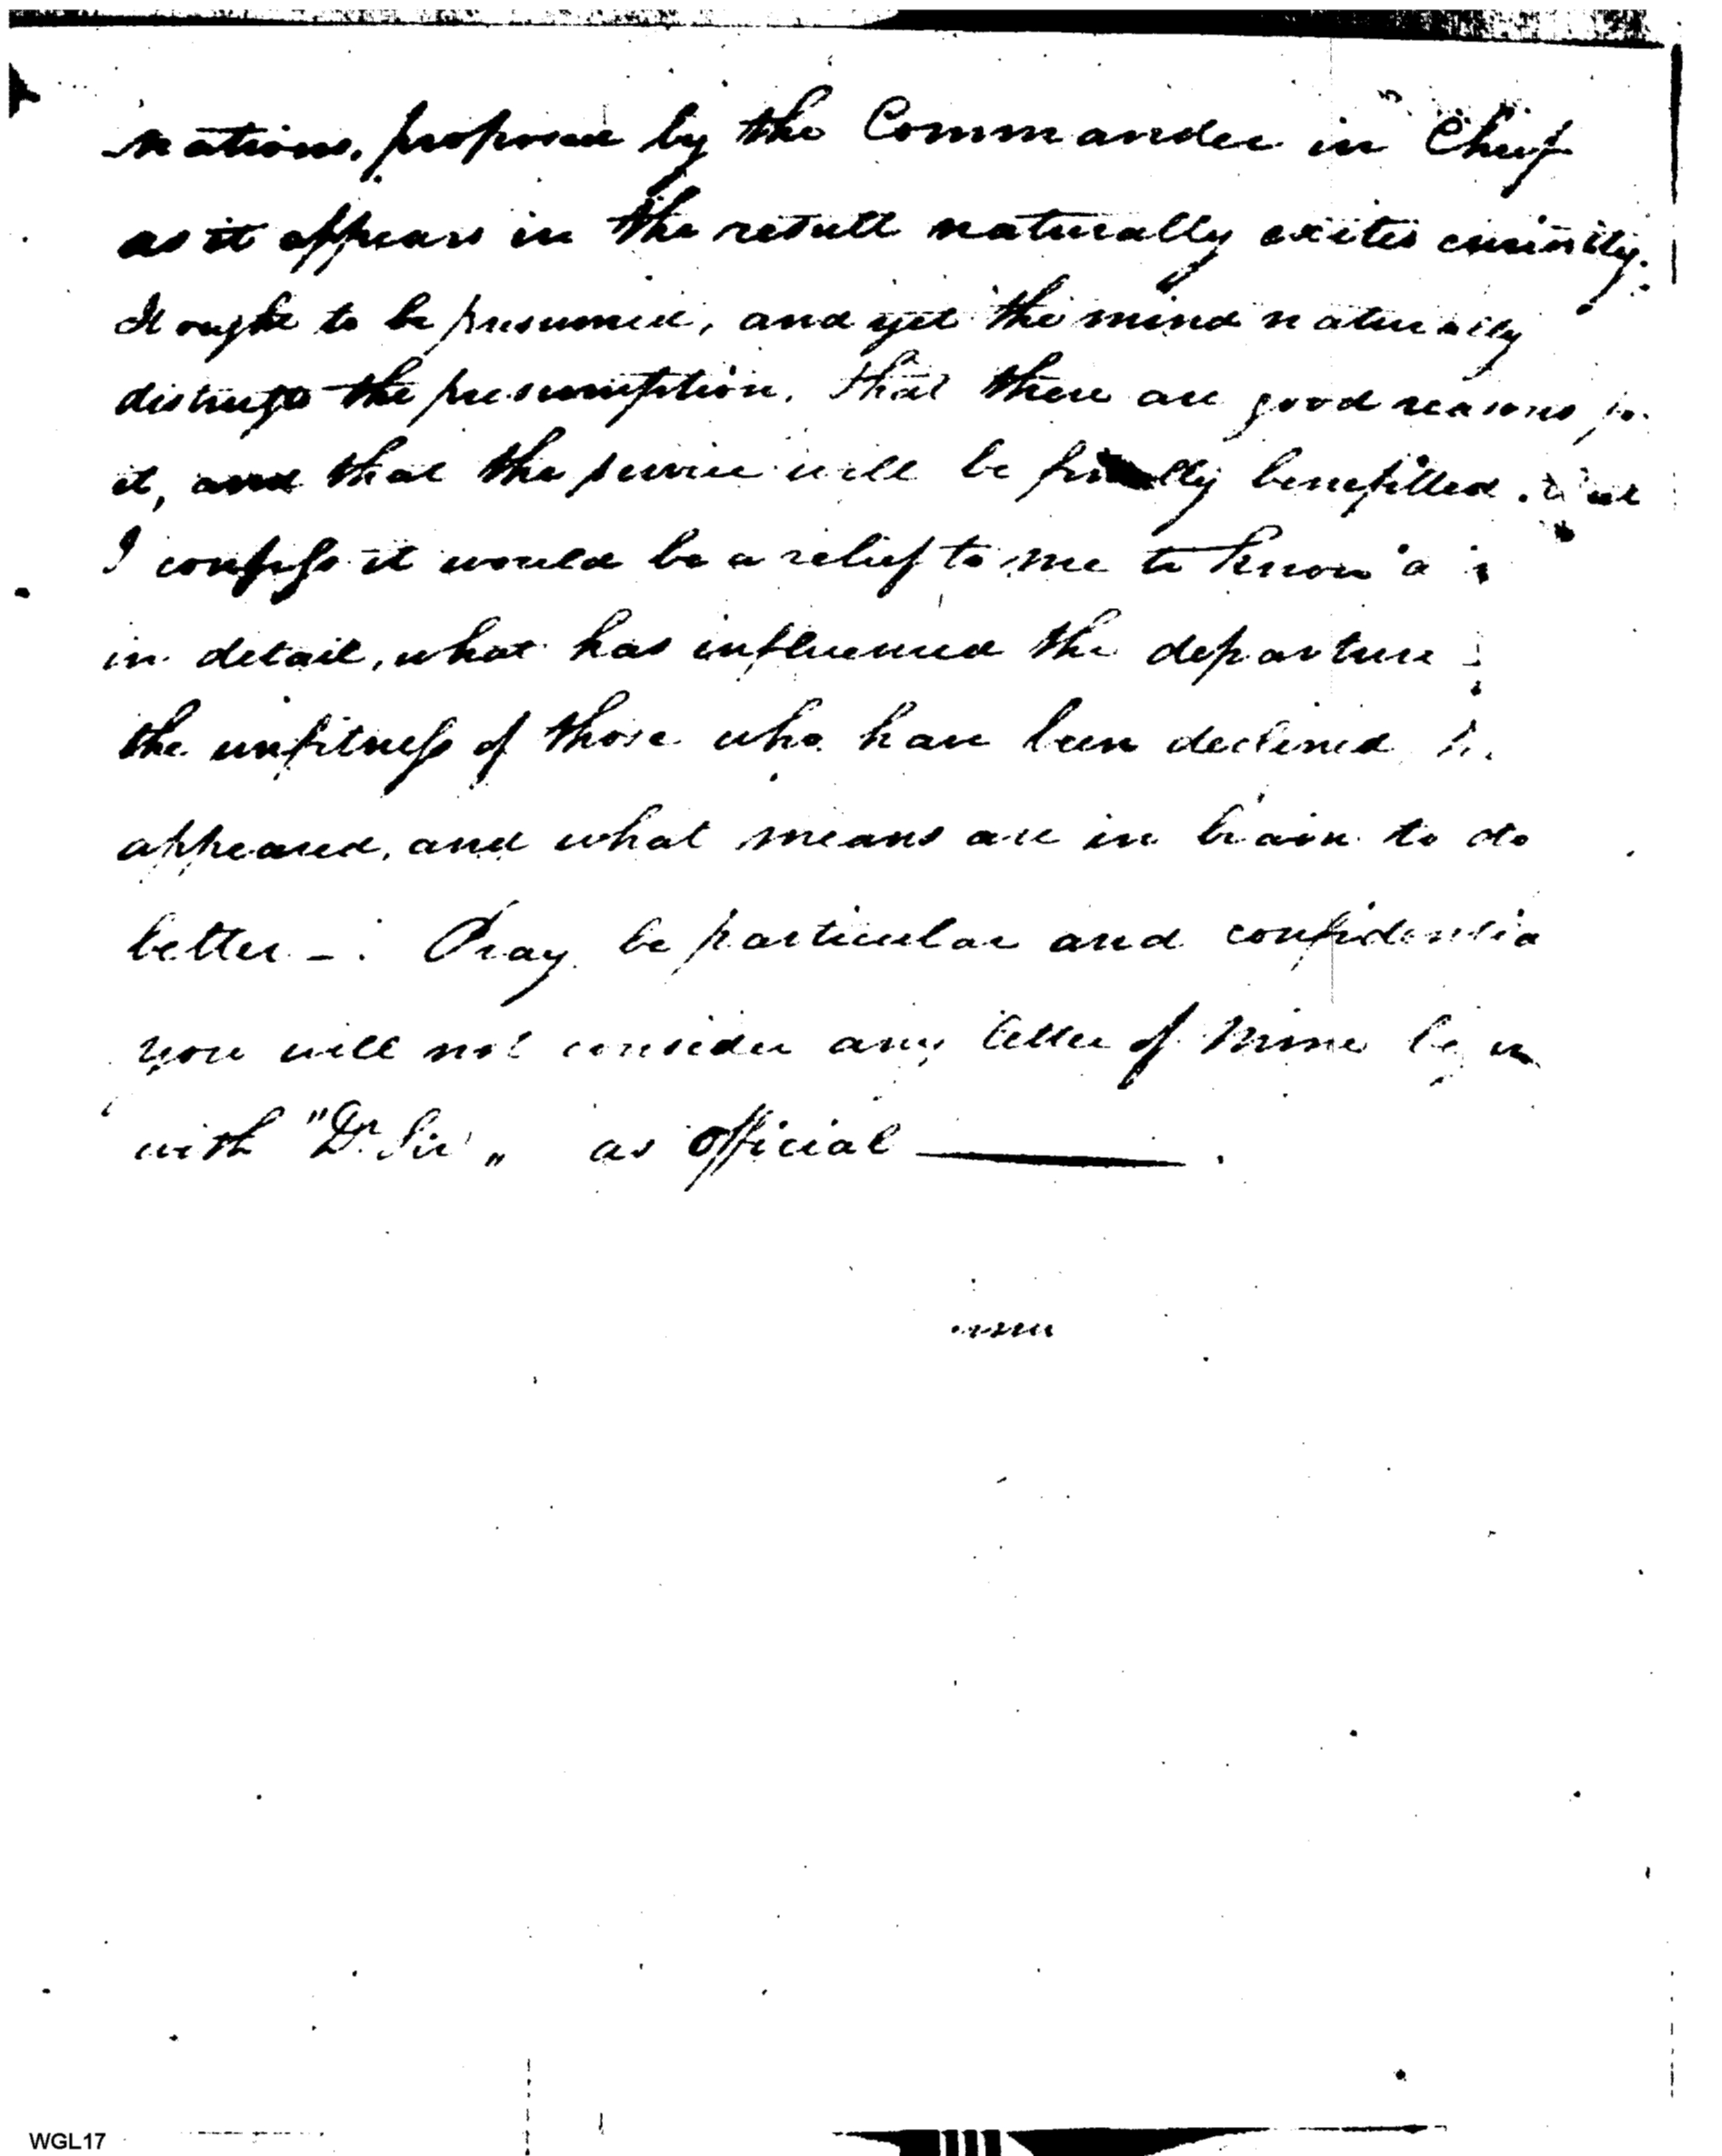 nations, proposed by the Commander in Chief
as it appears in the result naturally excites curiosity.
It ought to be presumed, and yet the mind naturally
distrusts the presumption, that there are good reasons
it, and that the service will be finally benefitted.
I confess it would be a relief to me to know
in detail, what has influenced the departure
the unfitness of those who have been declined
appeared, and what means are in train to do
better —. Pray be particular and confidentia
you will not consider any letter of mine
with "Dr. Sir" as official ———.
WGL17